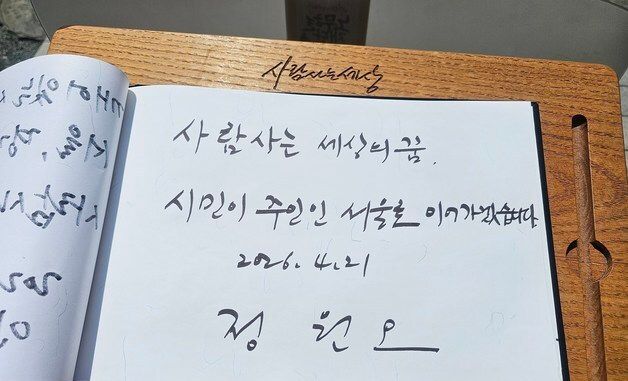 사람사는세상
사람사는 세상의 꿈.
시민이 주인인 서울로 이어가겠습니다
2026.4.21
정원오